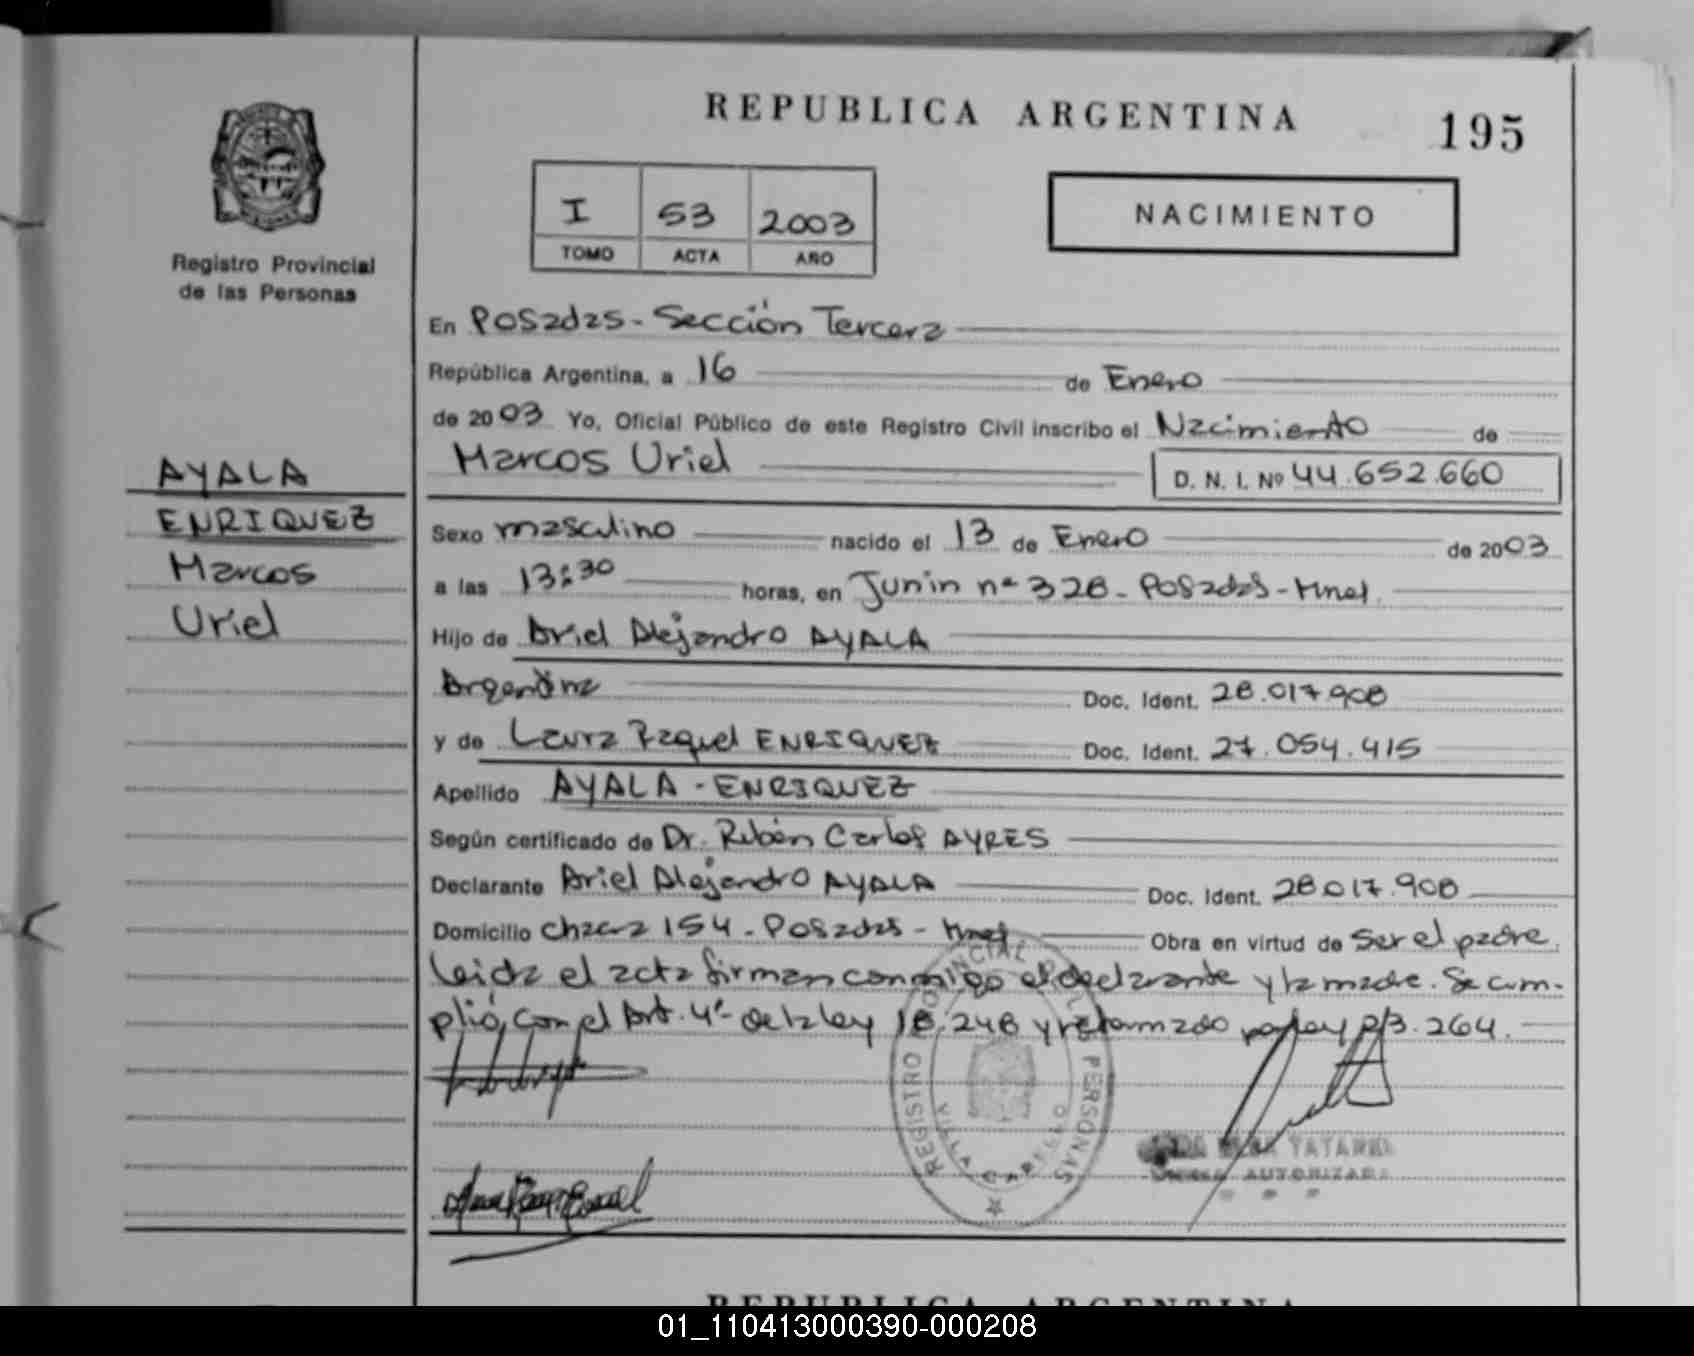 REPUBLICA ARGENTINA
195
I 53 2003
TOMO ACTA AÑO
NACIMIENTO
Registro Provincial
de las Personas
AYALA
ENRIQUEZ
Marcos
Uriel
En Posadas - Sección Tercera
República Argentina, a 16 de Enero
de 2003 Yo, Oficial Público de este Registro Civil inscribo el Nacimiento de
Marcos Uriel D. N. I. Nº 44.652.660
Sexo masculino nacido el 13 de Enero de 2003
a las 13:30 horas, en Junin nº 328 - Posadas - Mnes.
Hijo de Ariel Alejandro AYALA
Argentina Doc. Ident. 28.017.908
y de Laura Raquel ENRIQUEZ Doc. Ident. 27.054.415
Apellido AYALA - ENRIQUEZ
Según certificado de Dr. Rubén Carlos AYRES
Declarante Ariel Alejandro AYALA Doc. Ident. 28.017.908
Domicilio Chacra 154 - Posadas - Mnes Obra en virtud de ser el padre.
Leida el acta firman conmigo el declarante y la madre. Se cum-
plió, con el Art. 4º de la ley 18.248 y reformado por ley 23.264.
REGISTRO PROVINCIAL DE LAS PERSONAS
AUTORIZADA
REPUBLICA ARGENTINA
01_110413000390-000208